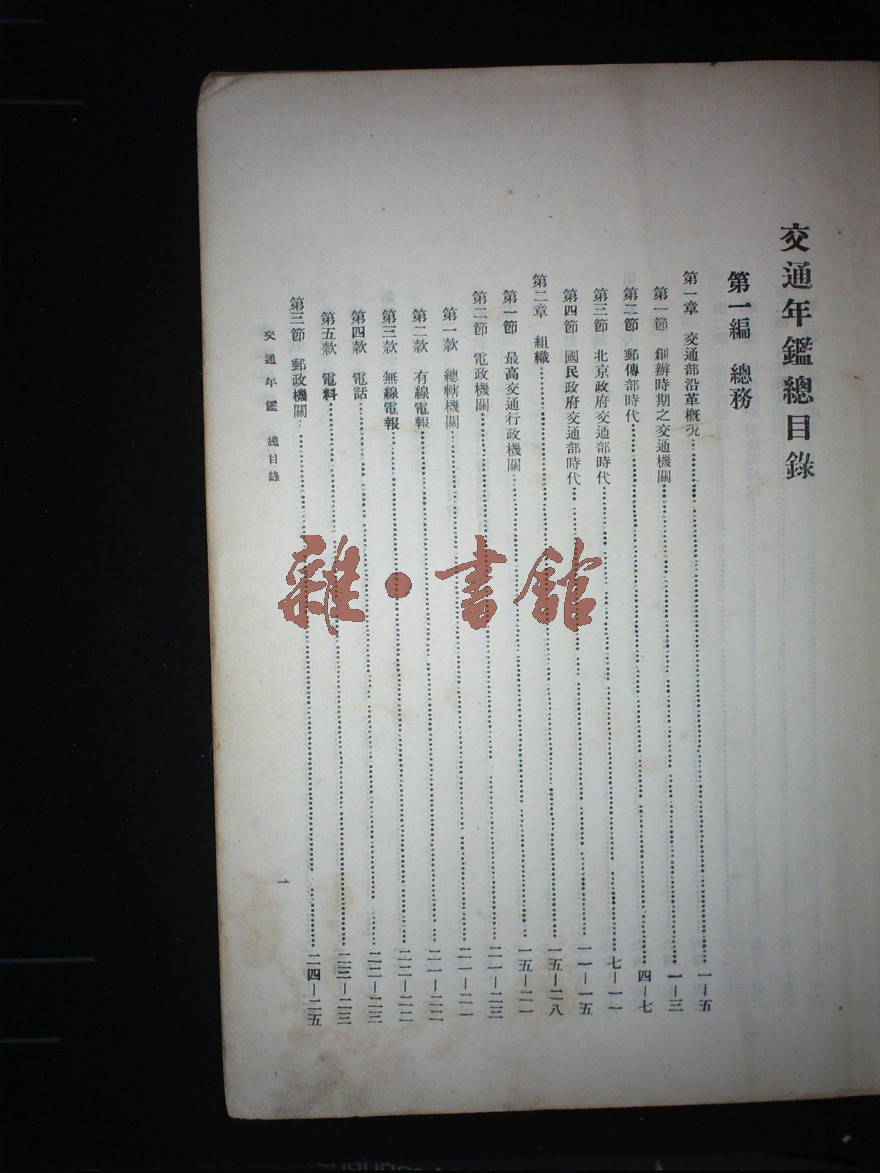 交通年鑑總目錄
第一編 總務
第一章 交通部沿革概況……一—五
第一節 創辦時期之交通機關……一—三
第二節 郵傳部時代……四—七
第三節 北京政府交通部時代……七—一一
第四節 國民政府交通部時代……一一—一五
第二章 組織……一五—二八
第一節 最高交通行政機關……一五—二一
第二節 電政機關……二一—二三
第一款 總轄機關……二一—二一
第二款 有線電報……二一—二二
第三款 無線電報……二二—二二
第四款 電話……二二—二三
第五款 電料……二三—二三
第三節 郵政機關……二四—二五
交通年鑑 總目錄
一
雜·書館